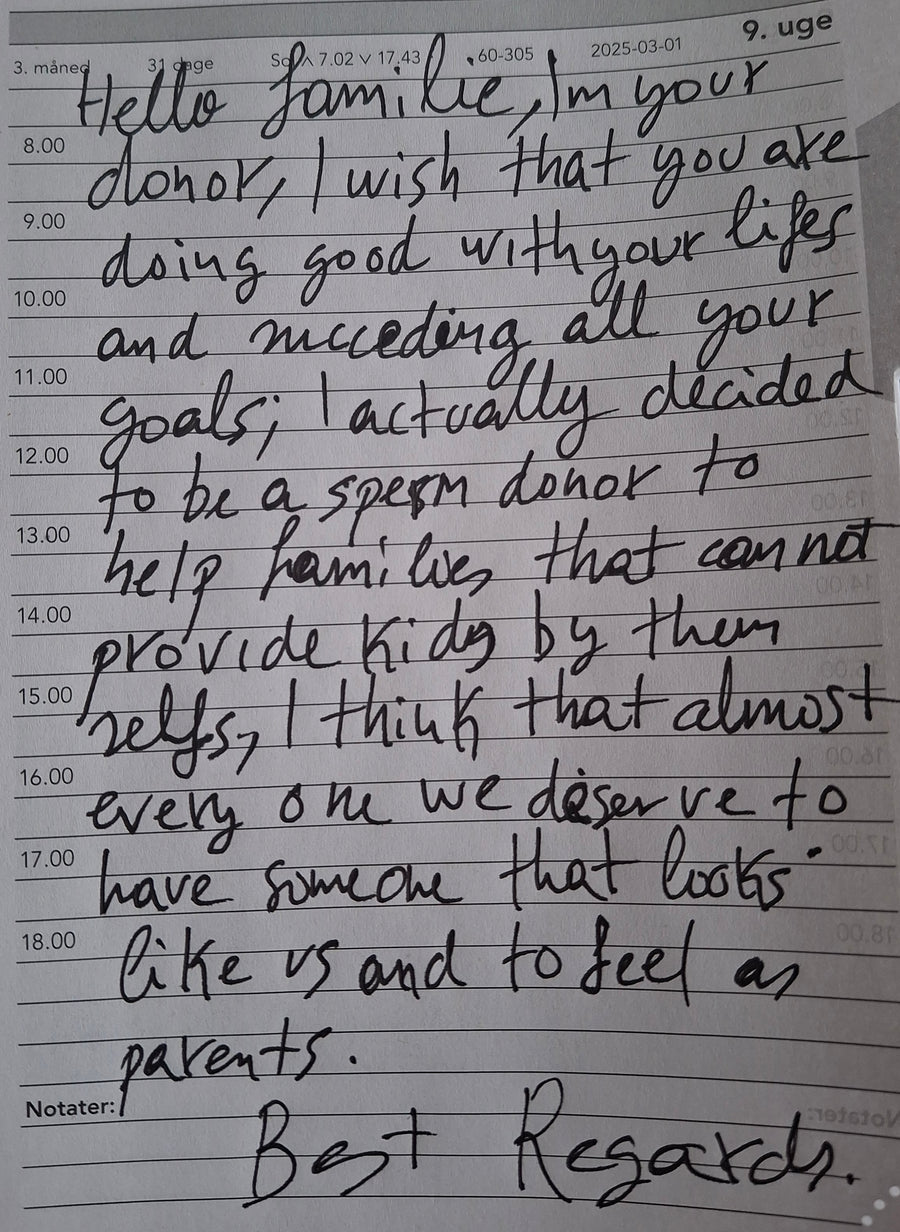 9. uge
3. måned 31 dage Sol ʌ 7.02 v 17.43 60-305 2025-03-01
Hello familie, Im your
8.00
donor, I wish that you are
9.00
doing good with your lifes
10.00
and succeding all your
11.00
goals; I actually decided
12.00
to be a sperm donor to
13.00
help families that can not
14.00
provide Kids by them
15.00
selfs, I think that almost
16.00
every one we deserve to
17.00
have someone that looks
18.00
like us and to feel as
parents.
Notater:
Best Regards.